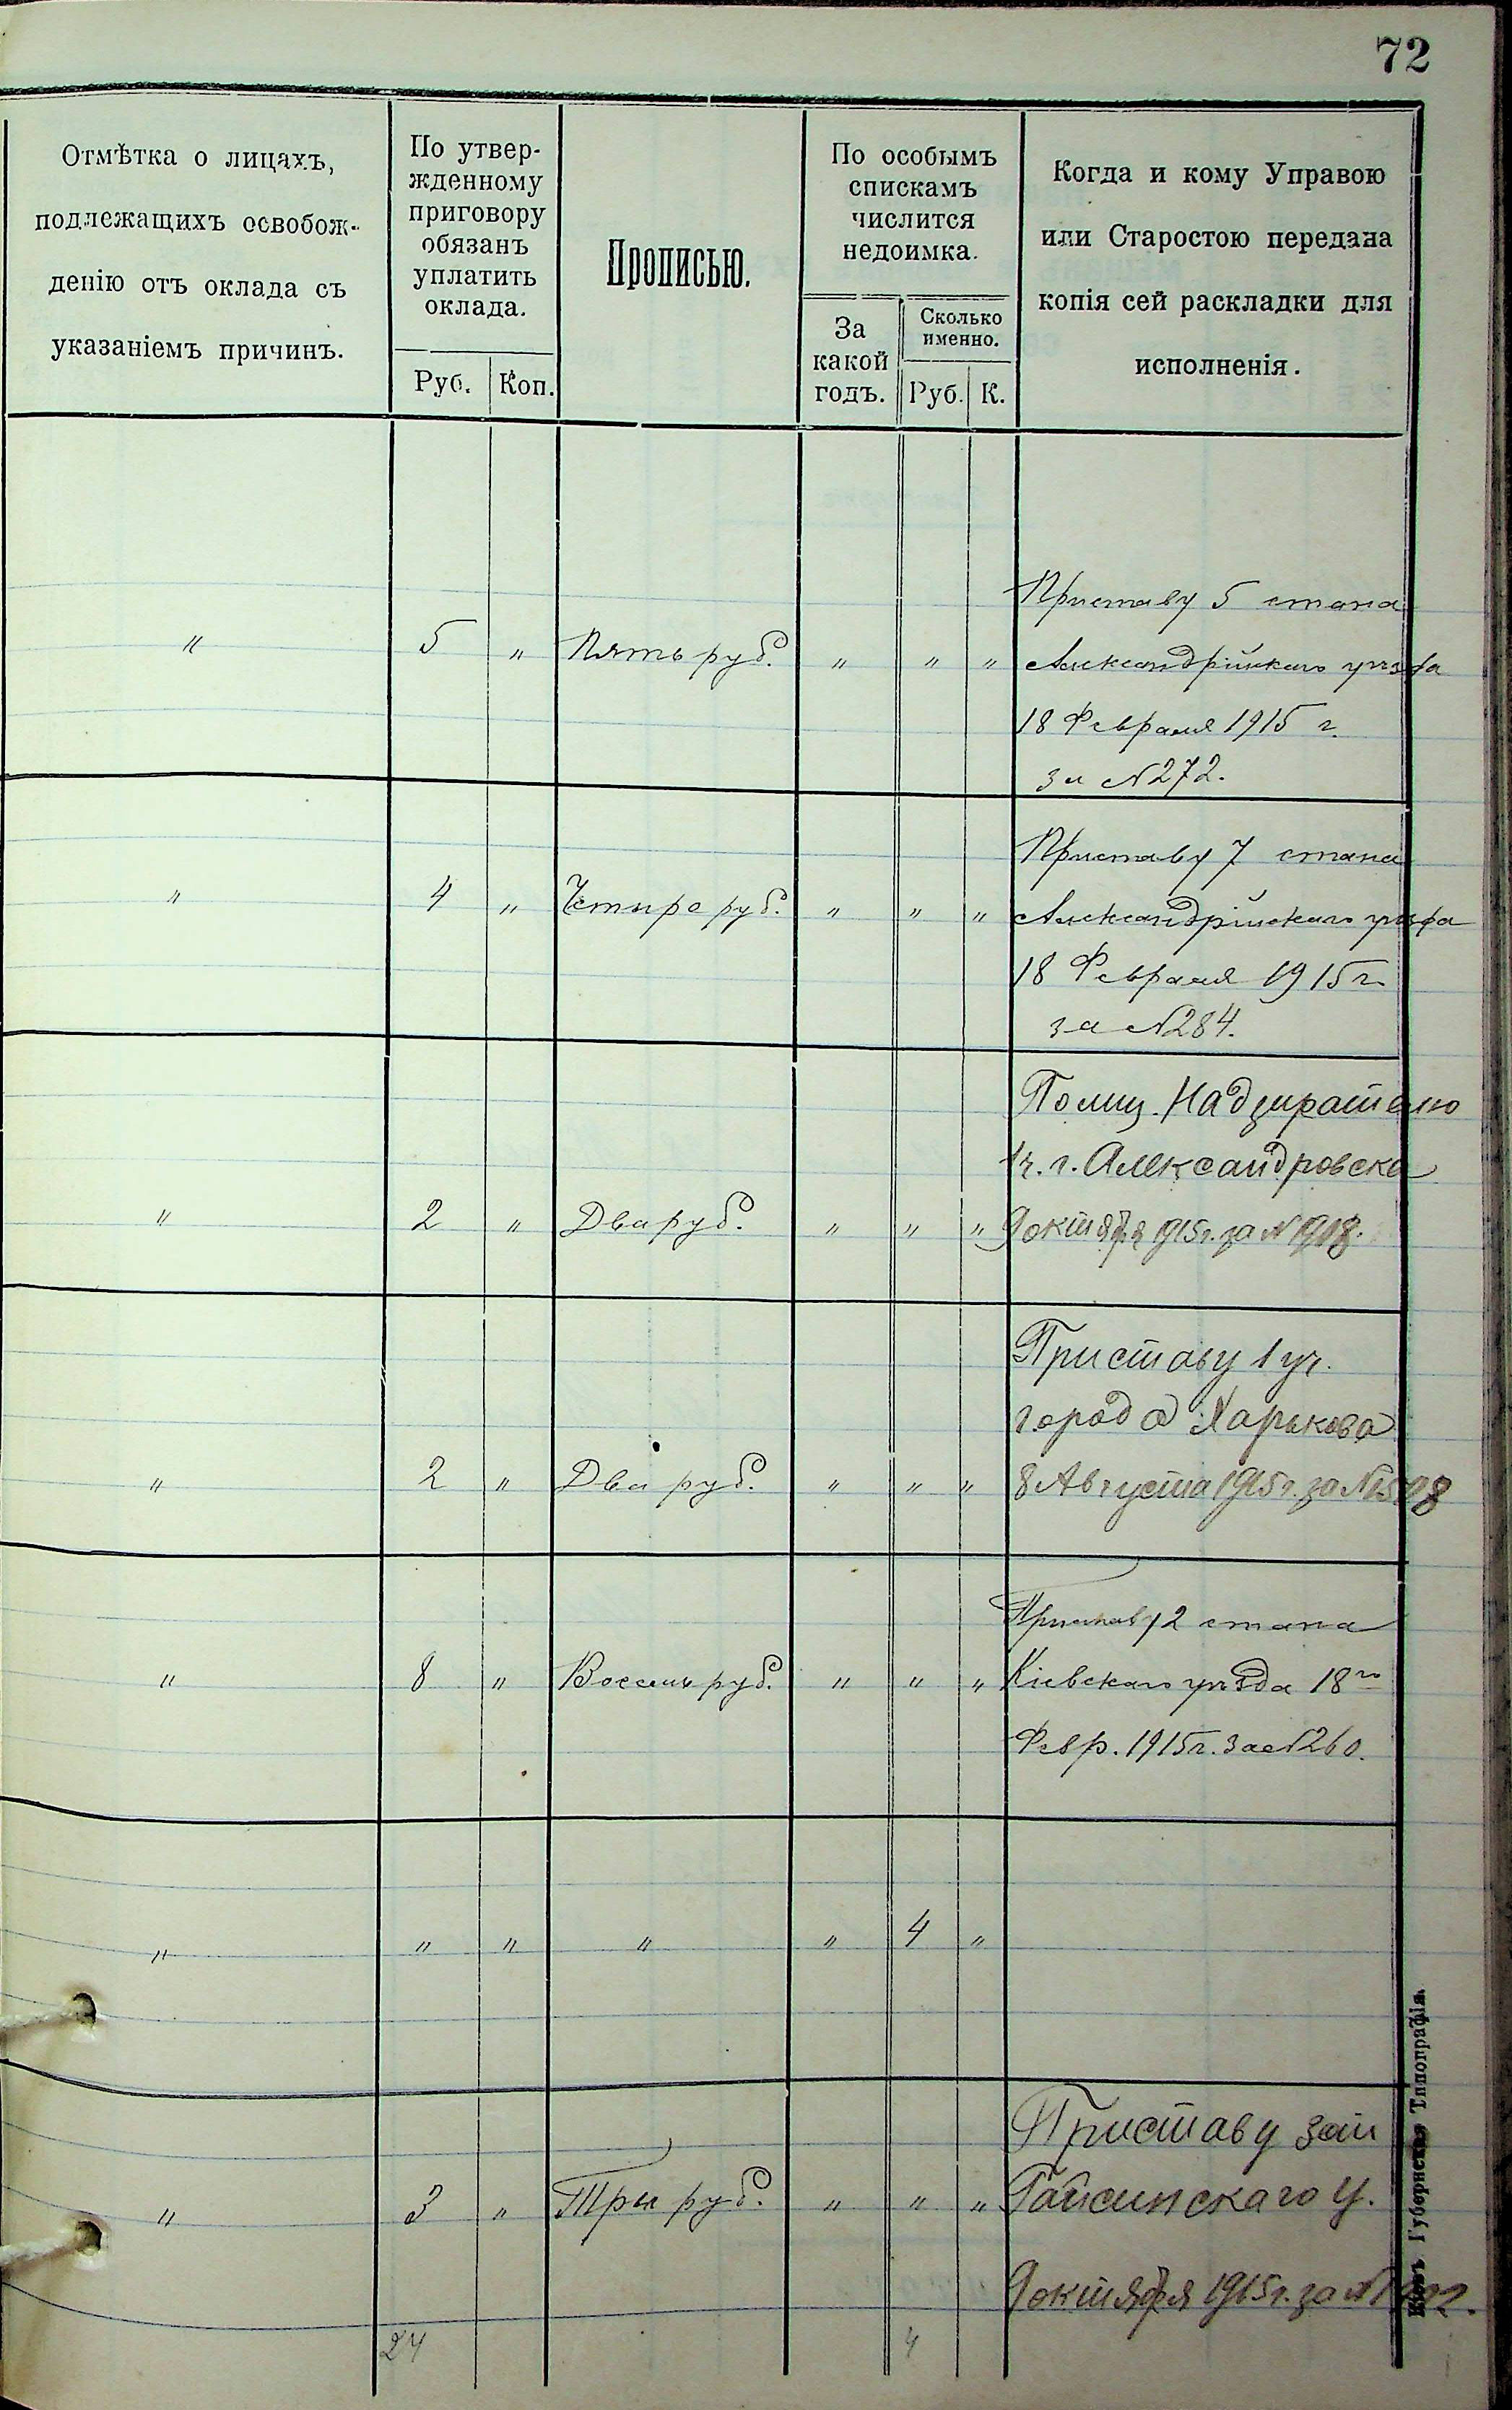 72
Отмѣтка о лицахъ,
подлежащихъ освобож-
денію отъ оклада съ
указаніемъ причинъ.
По утвер-
жденному
приговору
обязанъ
уплатить
оклада.
Руб. Коп.
Прописью.
По особымъ
спискамъ
числится
недоимка.
За
какой
годъ.
Сколько
именно.
Руб. К.
Когда и кому Управою
или Старостою передана
копія сей раскладки для
исполненія.
Приставу 5 стана
" 5 " Пять руб. " " " Александрійскаго уѣзда
18 Февраля 1915 г.
за №272.
Приставу 7 стана
" 4 " Четыре руб. " " " Александрійскаго уѣзда
18 Февраля 1915 г.
за №284.
Полиц. Надзирателю
1 ч. г. Александровска
" 2 " Два руб. " " " 9 октября 1915 г. за №
Приставу 1 уч.
города Харькова
" 2 " Два руб. " " " 8 Августа 1915 г. за №
Приставу 2 стана
" 8 " Восемь руб. " " " Кіевскаго уѣзда 18го
Февр. 1915 г. за №260.
" " " " " 4 "
Приставу
" 3 " Три руб. " " " Гайсинскаго у.
9 октября 1915 г. за №
24 4
Губернская Типографія.